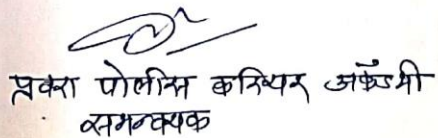 प्रवरा पोलीस करियर अकॅडमी
समन्वयक